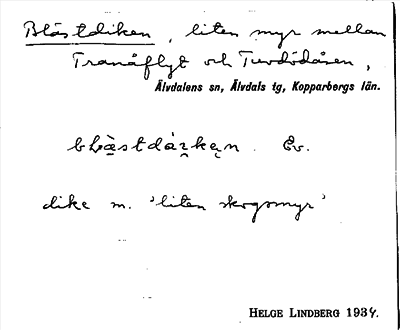 Blästdiken, liten myr mellan
Tranåflyt och
Älvdalens sn, Älvdals tg, Kopparbergs län.
Ev.
dike m. 'liten skogsmyr'
HELGE LINDBERG 1934.